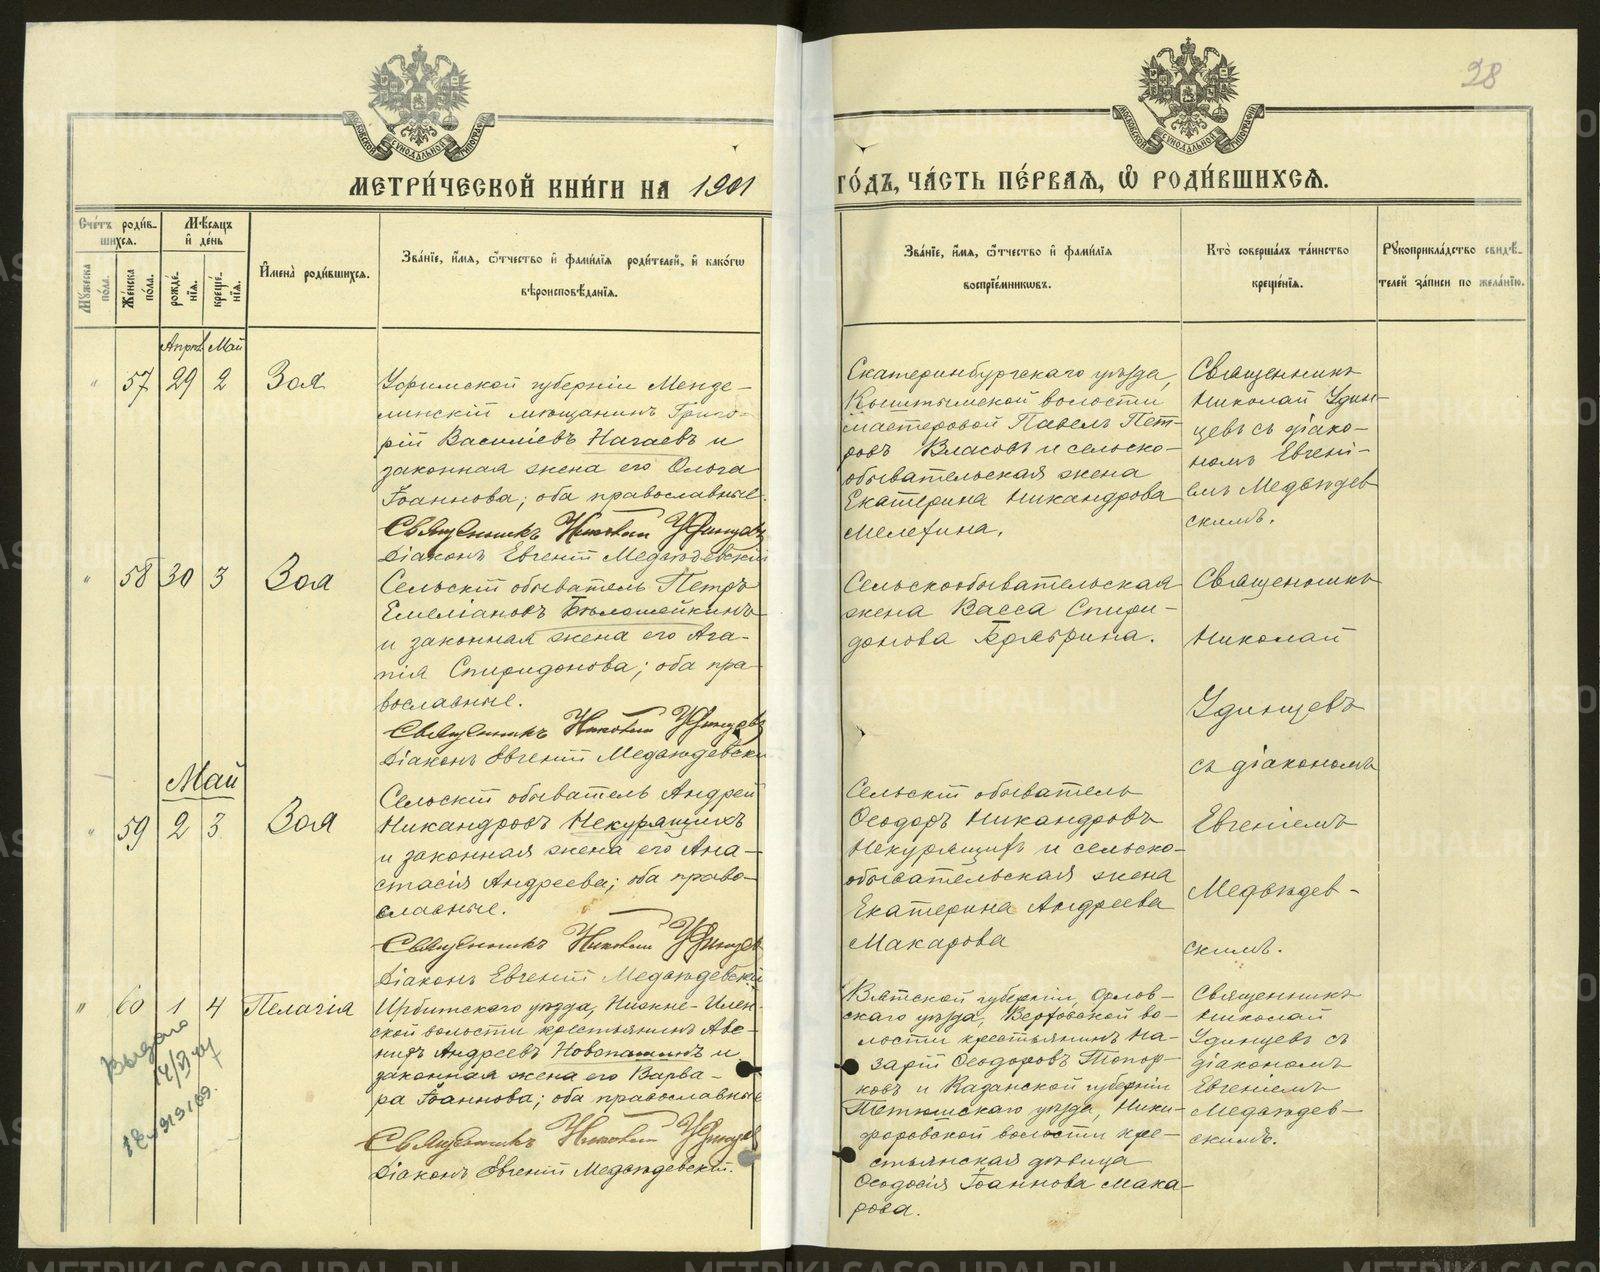 28
МОСКОВСКОЙ СУНОДАЛЬНОЙ ТИПОГРАФІИ
МОСКОВСКОЙ СУНОДАЛЬНОЙ ТИПОГРАФІИ
МЕТРИ́ЧЕСКОЙ КНИ́ГИ НА 1901 ГО́ДЪ, ЧА́СТЬ ПЕ́РВАѦ, Ѽ РОДИ́ВШИХСѦ.
Сче́тъ роди́в-
шихсѧ.
Мѣ́сѧцъ
и҆ де́нь
Мꙋ́жеска
по́ла.
Же́нска
по́ла.
рожде́-
нїѧ.
креще́-
нїѧ.
И҆мена̀ роди́вшихсѧ.
Зва́нїе, и҆́мѧ, ѻ҆́тчество и҆ фами́лїѧ роди́телей, и҆ како́гѡ
вѣроисповѣ́данїѧ.
Зва́нїе, и҆́мѧ, ѻ҆́тчество и҆ фами́лїѧ
воспрїе́мникѡвъ.
Кто̀ соверша́лъ та́инство
креще́нїѧ.
Рꙋкоприкла́дство свидѣ́-
телей за́писи по жела́нїю.
Апрѣл. Май
" 57 29 2 Зоя
Уфимской губерніи Мензе-
линскій мѣщанинъ Григо-
рій Василіевъ Нагаевъ и
законная жена его Ольга
Іоаннова; оба православные.
Священникъ Николай Удинцевъ
Діаконъ Евгеній Медвѣдевскій
Екатеринбургскаго уѣзда,
Кыштымской волости
мастеровой Павелъ Пет-
ровъ Власовъ и сельско-
обывательская жена
Екатерина Никандрова
Мелехина.
Священникъ
Николай Удин-
цевъ съ діако-
номъ Евгені-
емъ Медвѣдев
скимъ.
" 58 30 3 Зоя
Сельскій обыватель Петръ
Емеліановъ Бѣлошейкинъ
и законная жена его Ага-
пія Спиридонова; оба пра-
вославные.
Священникъ Николай Удинцевъ
Діаконъ Евгеній Медвѣдевскій
Сельскообывательская
жена Васса Спири-
донова
Священникъ
Николай
Удинцевъ
съ діакономъ
Евгеніемъ
Медвѣдев-
скимъ.
Май
" 59 2 3 Зоя
Сельскій обыватель Андрей
Никандровъ Некурящихъ
и законная жена его Ана-
стасія Андреева; оба право-
славные.
Священникъ Николай Удинцевъ
Діаконъ Евгеній Медвѣдевскій
Сельскій обыватель
Ѳеодоръ Никандровъ
Некурящихъ и сельско-
обывательская жена
Екатерина Андреева
Макарова
" 60 1 4 Пелагія
Ирбитскаго уѣзда, Нижне-Илен-
ской волости крестьянинъ Аве-
нирь Андреевъ Новопашинъ и
законная жена его Варва-
ра Іоаннова; оба православные
Священникъ Николай Удинцев
Діаконъ Евгеній Медвѣдевскій.
Вятской губерніи, Орлов-
скаго уѣзда, Верховской во-
лости крестьянинъ На-
зарій Ѳеодоровъ Топор-
ковъ и Казанской губерніи
Тетюшскаго уѣзда, Ники-
форовской волости кре-
стьянская дѣвица
Ѳеодосія Іоаннова Мака-
рова.
Священникъ
Николай
Удинцевъ съ
діакономъ
Евгеніемъ
Медвѣдев-
скимъ.
Выдано
METRIKI.GASO-URAL.RU